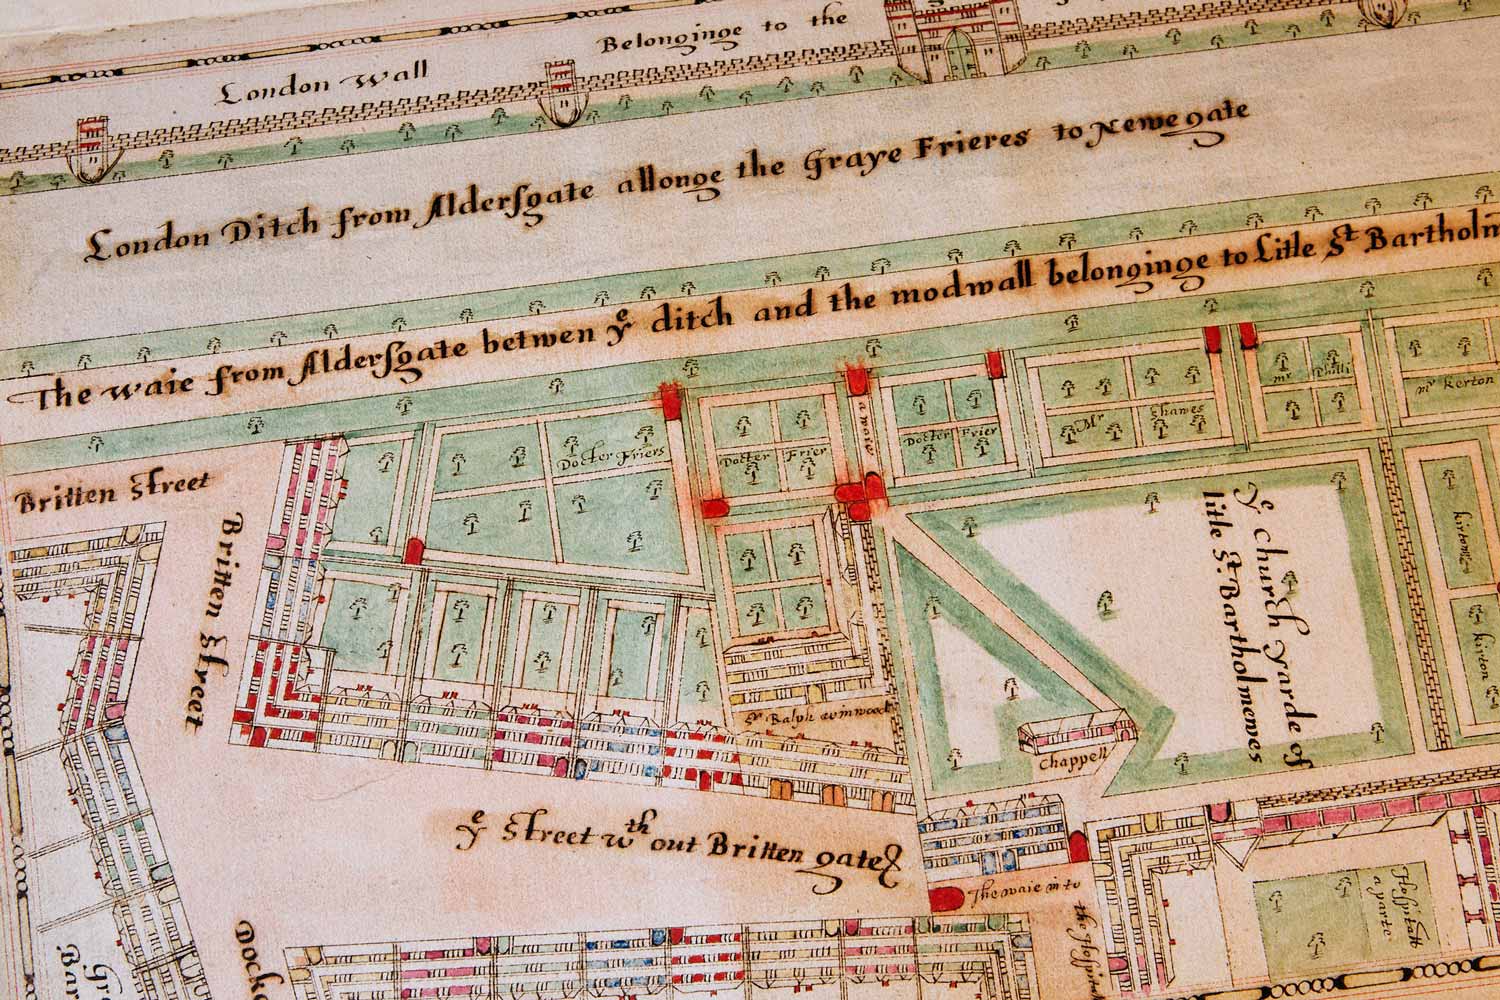 London Wall
Belonginge to the
London Ditch from Aldersgate allonge the Graye Frieres to Newegate
The waie from Aldersgate betwen ye ditch and the modwall belonginge to Litle St Bartholm
Britten Street
Britten Street
Docter Friers
Docter Frier
Docter Frier
Mr Shawes
mr
mr Kerton
kirton
Sr Ralph
Ye church yarde of
litle St Bartholmewes
Chappell
ye Street wth out Britten gate
The waie in to
the Hospital
Hospitall
a parte
Docke
Gre
Bar